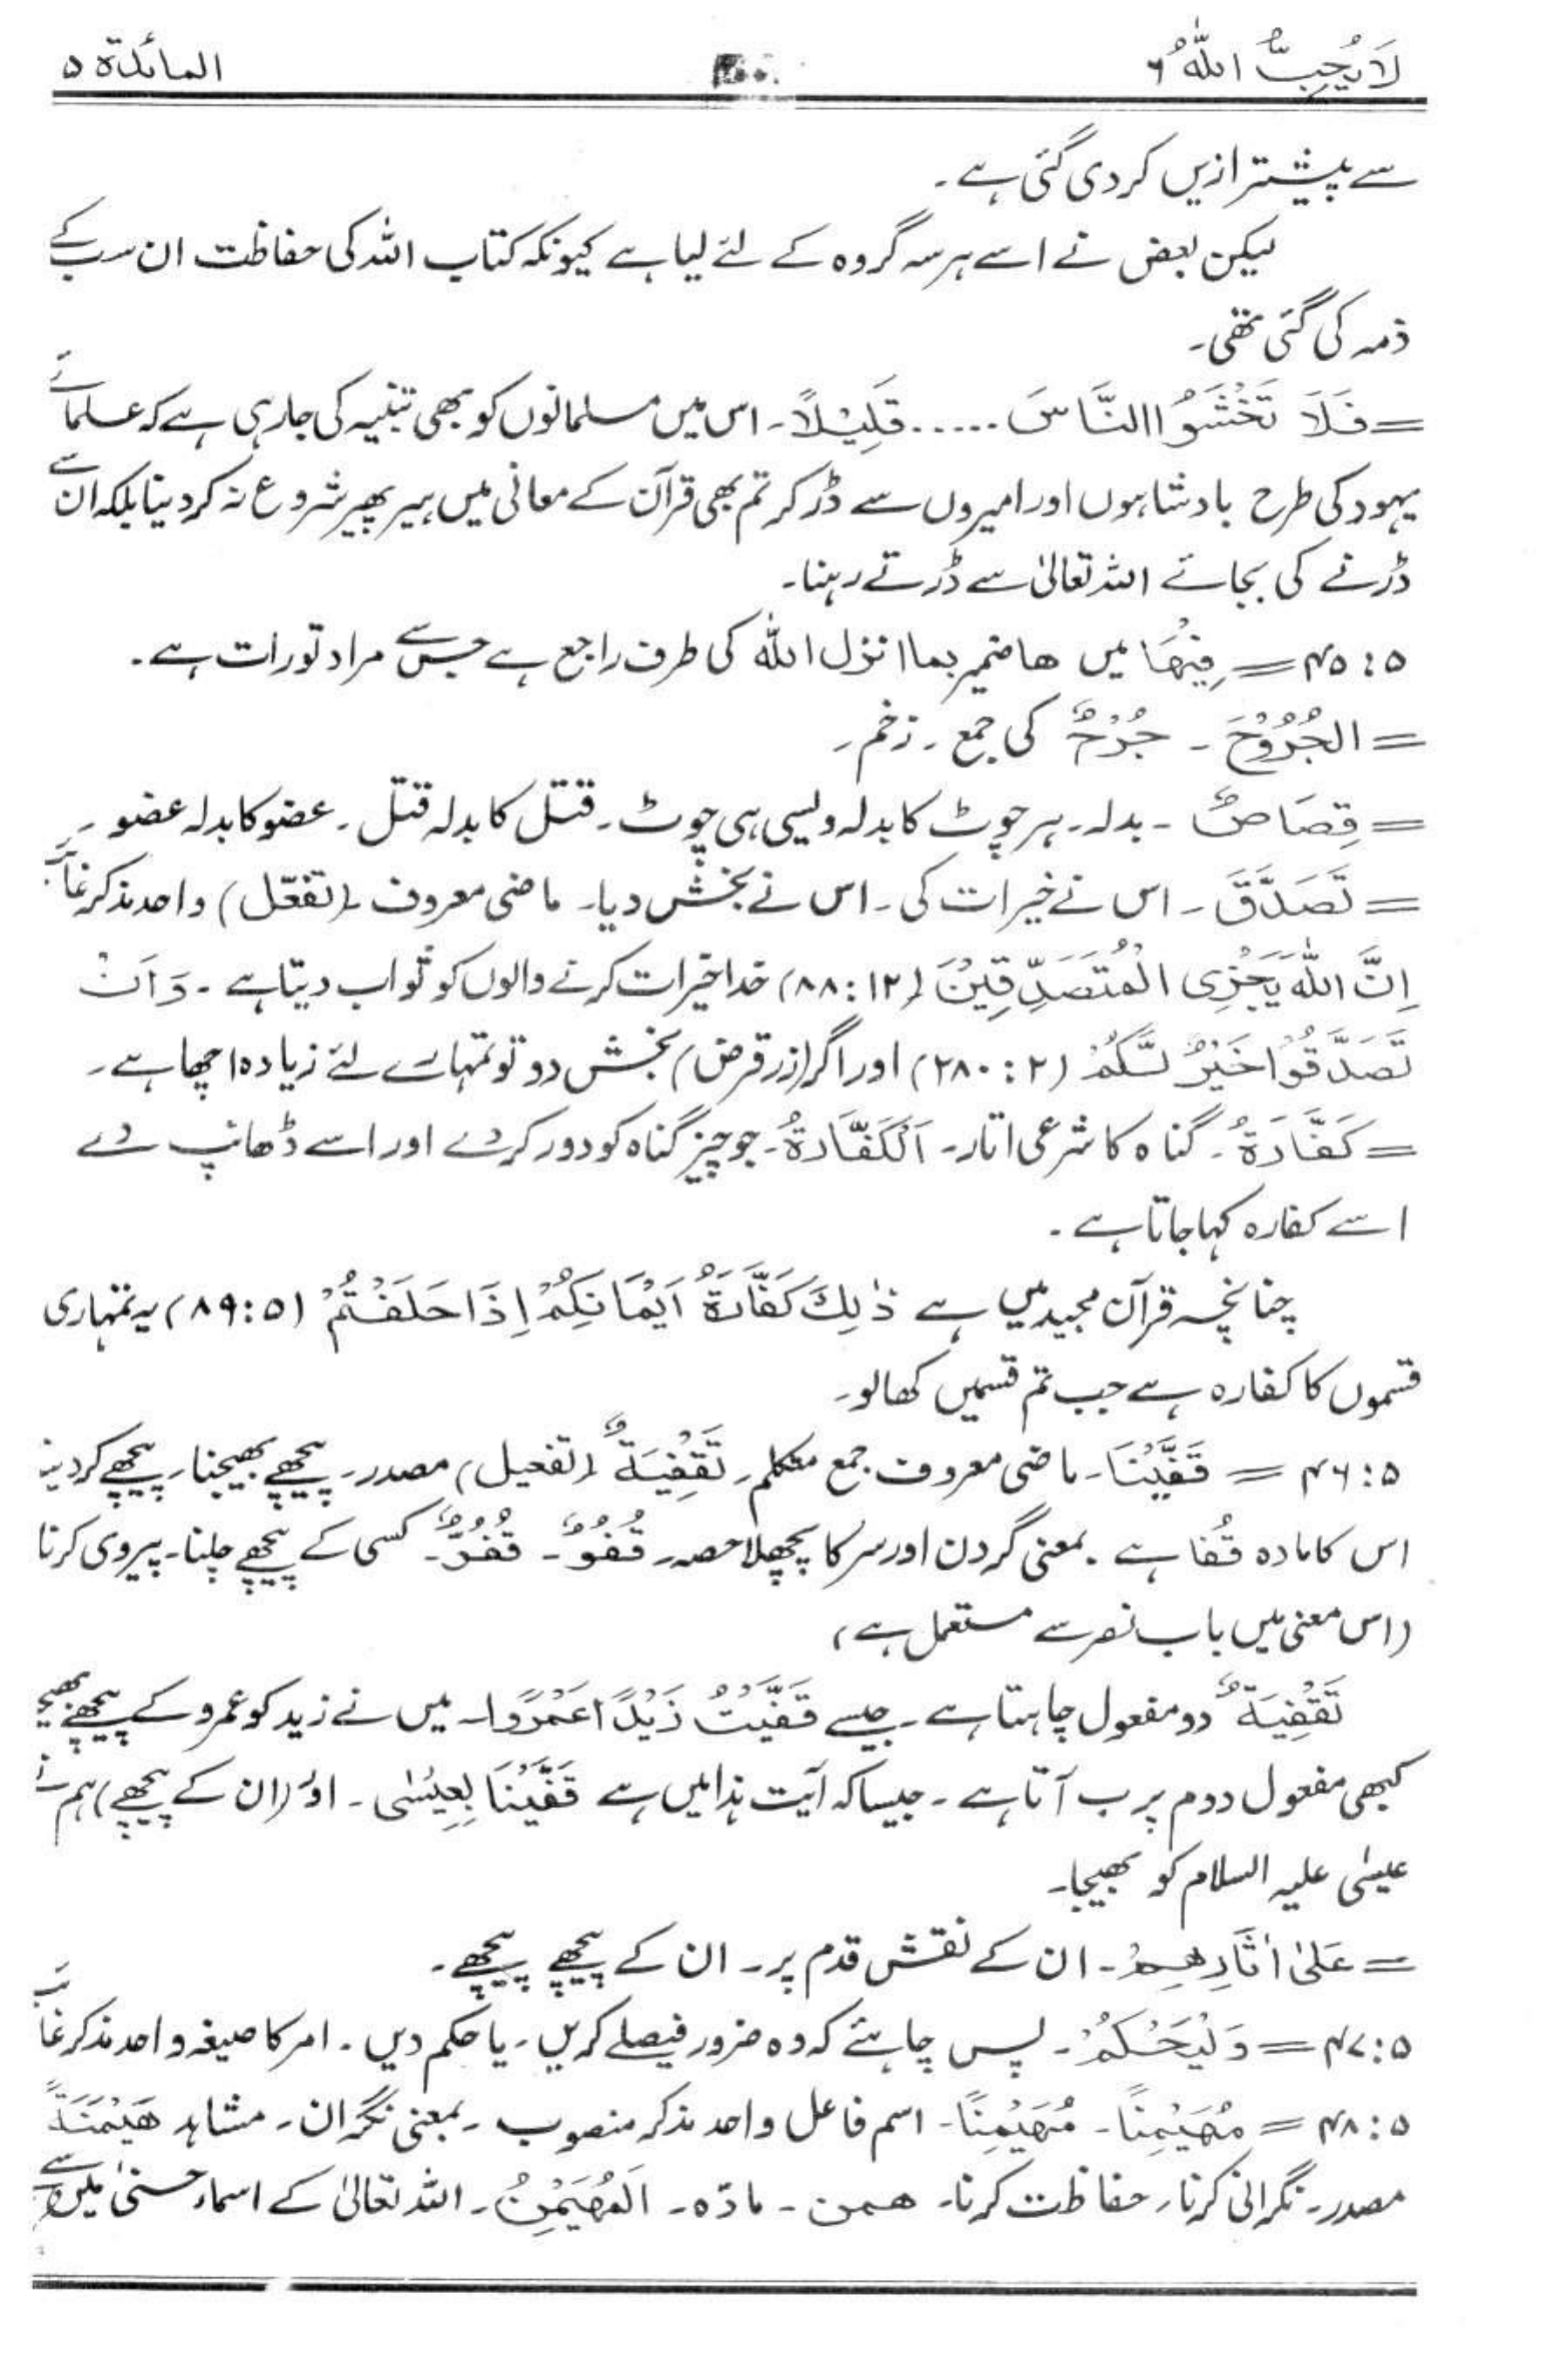 لَا یُحِبُّ اللّٰہُ ۶
المائدۃ ۵
سے پیشتر ازیں کردی گئی ہے۔
لیکن بعض نے اسے ہر سہ گروہ کے لئے لیا ہے کیونکہ کتاب اللہ کی حفاظت ان سب کے
ذمہ کی گئی تھی۔
= فَلَا تَخْشَوُا النَّاسَ ..... قَلِیْلًا۔ اس میں مسلمانوں کو بھی تنبیہ کی جارہی ہے کہ علمائے
یہود کی طرح بادشاہوں اور امیروں سے ڈر کر تم بھی قرآن کے معانی میں ہیر پھیر شروع نہ کر دینا بلکہ ان سے
ڈرنے کی بجائے اللہ تعالیٰ سے ڈرتے رہنا۔
۵:۴۵ = فِیْھَا میں ھا ضمیر بما انزل اللہ کی طرف راجع ہے جس سے مراد تورات ہے۔
= الْجُرُوْحَ ۔ جُرْحٌ کی جمع ۔ زخم۔
= قِصَاصٌ ۔ بدلہ۔ ہر چوٹ کا بدلہ ویسی ہی چوٹ۔ قتل کا بدلہ قتل۔ عضو کا بدلہ عضو۔
= تَصَدَّقَ ۔ اس نے خیرات کی۔ اس نے بخش دیا۔ ماضی معروف۔ (تفعّل) واحد مذکر غائب۔
اِنَّ اللہَ یَجْزِی الْمُتَصَدِّقِیْنَ (۱۲:۸۸) خدا خیرات کرنے والوں کو ثواب دیتا ہے۔ وَاَنْ
تَصَدَّقُوْا خَیْرٌ لَّکُمْ (۲:۲۸۰) اور اگر (زر قرض) بخش دو تو تمہارے لئے زیادہ اچھا ہے۔
= کَفَّارَۃٌ۔ گناہ کا شرعی اتار۔ اَلْکَفَّارَۃُ۔ جو چیز گناہ کو دور کردے اور اسے ڈھانپ دے
اسے کفارہ کہا جاتا ہے۔
چنانچہ قرآن مجید میں ہے ذٰلِکَ کَفَّارَۃُ اَیْمَانِکُمْ اِذَا حَلَفْتُمْ (۵:۸۹) یہ تمہاری
قسموں کا کفارہ ہے جب تم قسمیں کھالو۔
۵:۴۶ = قَفَّیْنَا۔ ماضی معروف جمع متکلم۔ تَقْفِیَۃٌ (تفعیل) مصدر۔ پیچھے بھیجنا۔ پیچھے کر دینا
اس کا مادہ قُفا ہے۔ بمعنی گردن اور سر کا پچھلا حصہ۔ قُفْوٌ۔ قُفُوٌّ۔ کسی کے پیچھے چلنا۔ پیروی کرنا
(اس معنی میں باب نصر سے مستعمل ہے)
تَقْفِیَۃٌ دو مفعول چاہتا ہے۔ جیسے قَفَّیْتُ زَیْدًا عَمْرًوا۔ میں نے زید کو عمرو کے پیچھے بھیجا
کبھی مفعول دوم پر ب آتا ہے۔ جیسا کہ آیت ہذا میں ہے قَفَّیْنَا بِعِیْسٰی۔ اور (ان کے پیچھے) ہم نے
عیسٰی علیہ السلام کو بھیجا۔
= عَلٰی اٰثَارِھِمْ۔ ان کے نقش قدم پر۔ ان کے پیچھے پیچھے۔
۵:۴۷ = وَلْیَحْکُمْ۔ پس چاہئے کہ وہ ضرور فیصلے کریں۔ یا حکم دیں۔ امر کا صیغہ واحد مذکر غائب
۵:۴۸ = مُھَیْمِنًا۔ مُھَیْمِنًا۔ اسم فاعل واحد مذکر منصوب۔ بمعنی نگران۔ مشاہد ھَیْمَنَۃً
مصدر۔ نگرانی کرنا۔ حفاظت کرنا۔ ھمن ۔ مادّہ۔ اَلْمُھَیْمِنُ۔ اللہ تعالیٰ کے اسماء حسنیٰ میں سے